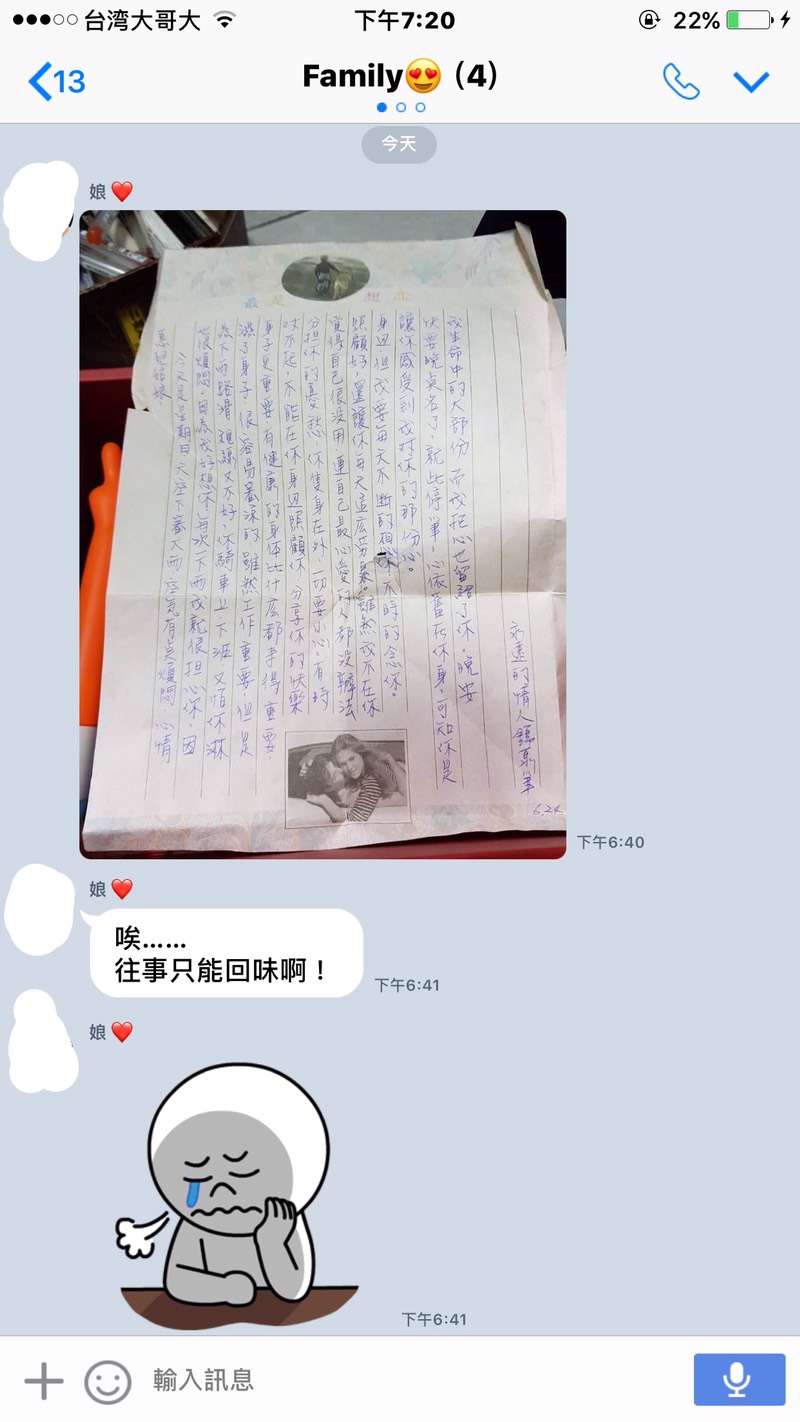 台湾大哥大
下午7:20
22%
13
Family😍 (4)
今天
娘❤️
最 是 想 念
姑娘
今天是星期日,天空下著大雨,空氣有点煩悶 心情
很煩悶,因為我好想你,每次一下雨我就很担心你,因
為下雨路滑 視線又不好,你騎車上下班 又怕你淋
濕了身子,很容易著涼的,雖然工作重要,但是
身子更重要,有健康的身体比什広都來得重要,
对不起,不能在你身边照顧你,分享你的快樂
分担你的憂愁,你隻身在外,一切要小心。有時
覺得自己很没用 連自己最心愛的人都没辦法
照顧好,還讓你每天這広勞累。雖然我不在你
身边,但我要每天不斷的想你,不時的念你。
讓你感受到我对你的那份心。
快要晚点名了,就此停筆,心依舊在你身,可知你是
我生命中的大部份 而我把心也留給了你。晚安
永遠的情人 筆
6.24
下午6:40
娘❤️
唉......
往事只能回味啊！
下午6:41
娘❤️
下午6:41
輸入訊息